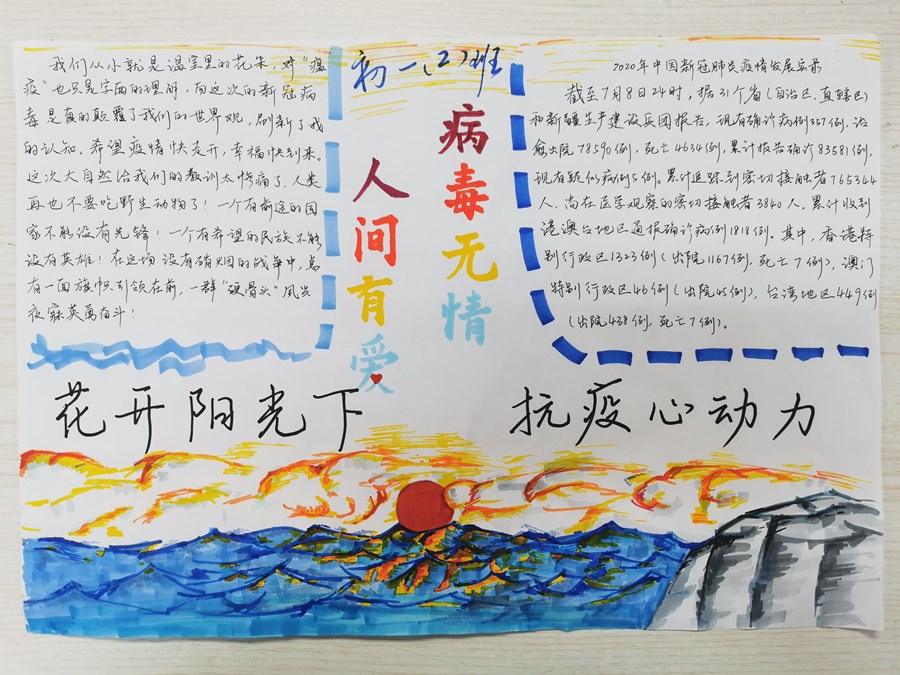 我们从小就是温室里的花朵，对“瘟
疫”也只是字面的理解，而这次的新冠病
毒是真的颠覆了我们的世界观，刷新了我
的认知。希望疫情快走开，幸福快到来。
这次大自然给我们的教训太惨痛了，人类
再也不要吃野生动物了！一个有前途的国
家不能没有先锋！一个有希望的民族不能
没有英雄！在这场没有硝烟的战争中，总
有一面旗帜引领在前，一群“硬骨头”风尘
夜寐英勇奋斗！
初一(2)班
病毒无情
人间有爱
2020年中国新冠肺炎疫情发展实录
截至7月8日24时，据31个省(自治区、直辖区)
和新疆生产建设兵团报告，现有确诊病例357例，治
愈出院78590例，死亡4634例，累计报告确诊83581例，
现有疑似病例5例。累计追踪到密切接触者765344
人，尚在医学观察的密切接触者3840人。累计收到
港澳台地区通报确诊病例1818例。其中，香港特
别行政区1323例(出院1167例，死亡7例)，澳门
特别行政区46例(出院45例)，台湾地区449例
(出院438例，死亡7例)。
花开阳光下
抗疫心动力